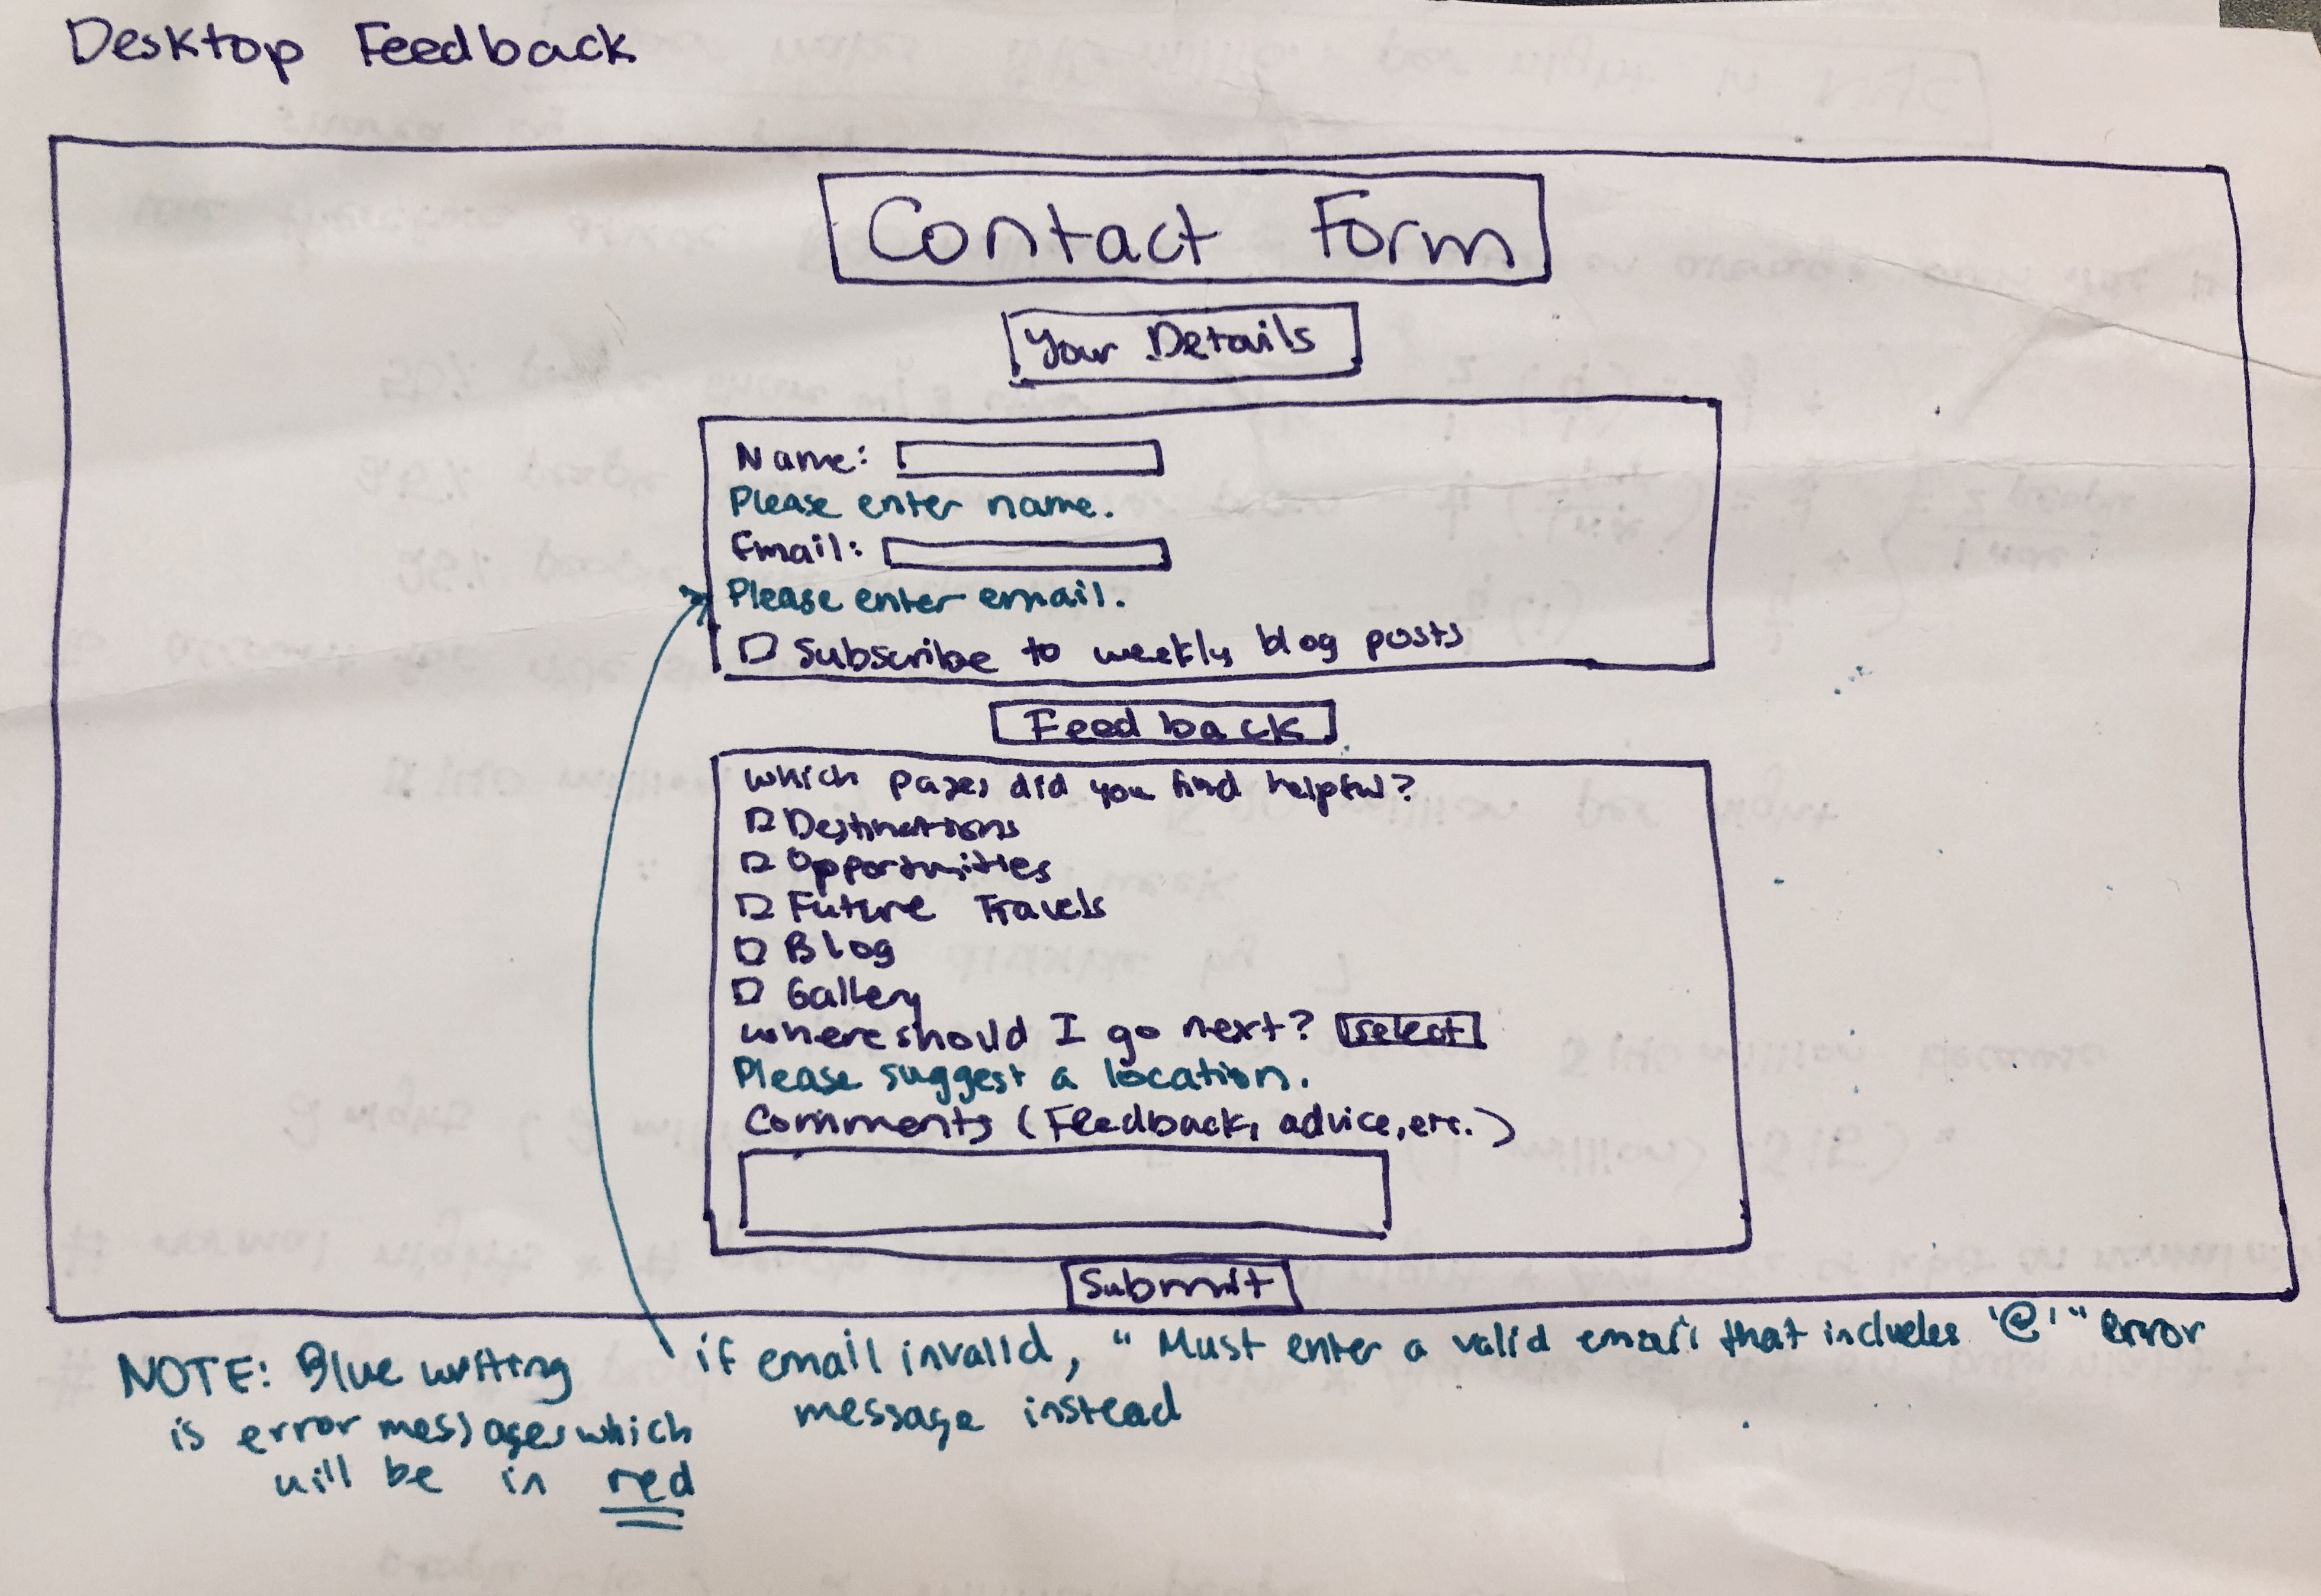 Desktop Feedback
Contact Form
Your Details
Name:
Please enter name.
Email:
Please enter email.
Subscribe to weekly blog posts
Feedback
Which pages did you find helpful?
Destinations
Opportunities
Future Travels
Blog
Gallery
where should I go next? select
Please suggest a location.
Comments (Feedback, advice, etc.)
Submit
NOTE: Blue writing
is error messages which
will be in red
if email invalid, "Must enter a valid email that includes '@'" error
message instead